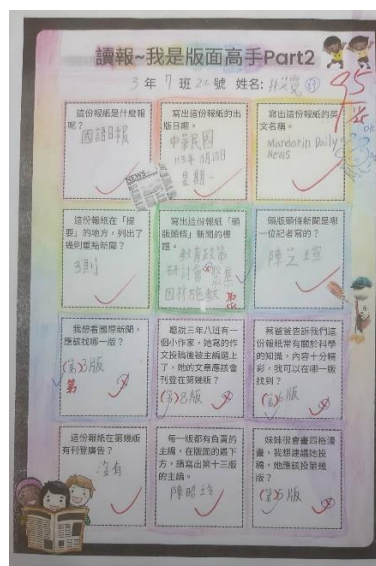 讀報~我是版面高手Part2
3 年 7 班 22 號 姓名:
95
這份報紙是什麼報
呢?
國語日報
寫出這份報紙的出
版日期。
中華民國
星期一
寫出這份報紙的英
文名稱。
Mandarin Daily
News
NEWS
這份報紙在「提
要」的地方,列出了
幾則重點新聞?
3則
寫出這份報紙「頭
版頭條」新聞的標
題。
教育政策
研討會
因材施教
頭版頭條新聞是哪
一位記者寫的?
我想看國際新聞,
應該找哪一版?
(第)3版
第
聽說三年八班有一
個小作家,她寫的作
文投稿後被主編選上
了,她的文章應該會
刊登在第幾版?
(第)8版
蔡爸爸告訴我們這
份報紙常有關於科學
的知識,內容十分精
彩,我可以在哪一版
找到?
(第)6版
這份報紙在第幾版
有刊登廣告?
沒有
每一版都有負責的
主編,在版面的最下
方,請寫出第十三版
的主編。
妹妹很會畫四格漫
畫,我想建議她投
稿,她應該投第幾
版?
(第)5版